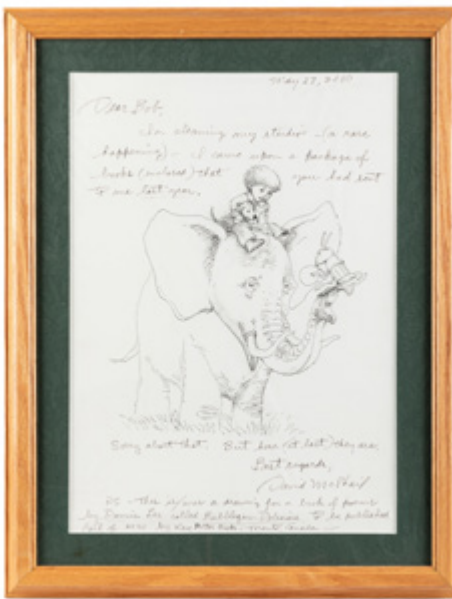 May 27, 2000
Dear Bob,
I'm cleaning my studio - (a rare
happening) - I came upon a package of
books (enclosed) that you had sent
to me last year.
Sorry about that. But here (at last) they are.
Best regards,
David McPhail
PS - This is/was a drawing for a book of poems
by Dennis Lee called to be published
of by